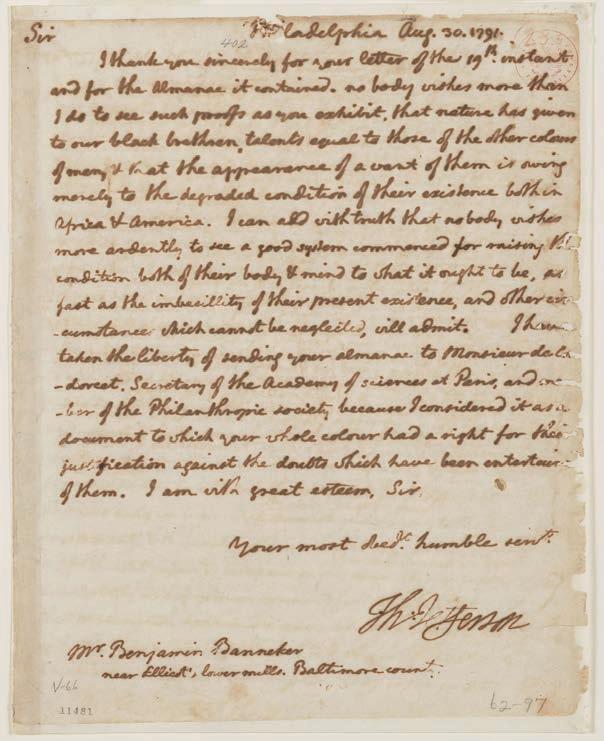 Sir Philadelphia Aug. 30. 1791.
402
I thank you sincerely for your letter of the 19th. instant
and for the Almanac it contained. no body wishes more than
I do to see such proofs as you exhibit, that nature has given
to our black brethren, talents equal to those of the other colours
of men, & that the appearance of a want of them is owing
merely to the degraded condition of their existence both in
Africa & America. I can add with truth that no body wishes
more ardently to see a good system commenced for raising the
condition both of their body & mind to what it ought to be, as
fast as the imbecillity of their present existence, and other cir
-cumstances which cannot be neglected, will admit. I have
taken the liberty of sending your almanac to Monsieur de
-dorcet, Secretary of the Academy of sciences at Paris, and
-ber of the Philanthropic society because I considered it as a
document to which your whole colour had a right for their
justification against the doubts which have been entertain
of them. I am with great esteem, Sir,
Your most obedt. humble servt.
Th: Jefferson
Mr. Benjamin Banneker
near Ellicot's, lower mills. Baltimore count
V-66
11481
62-97